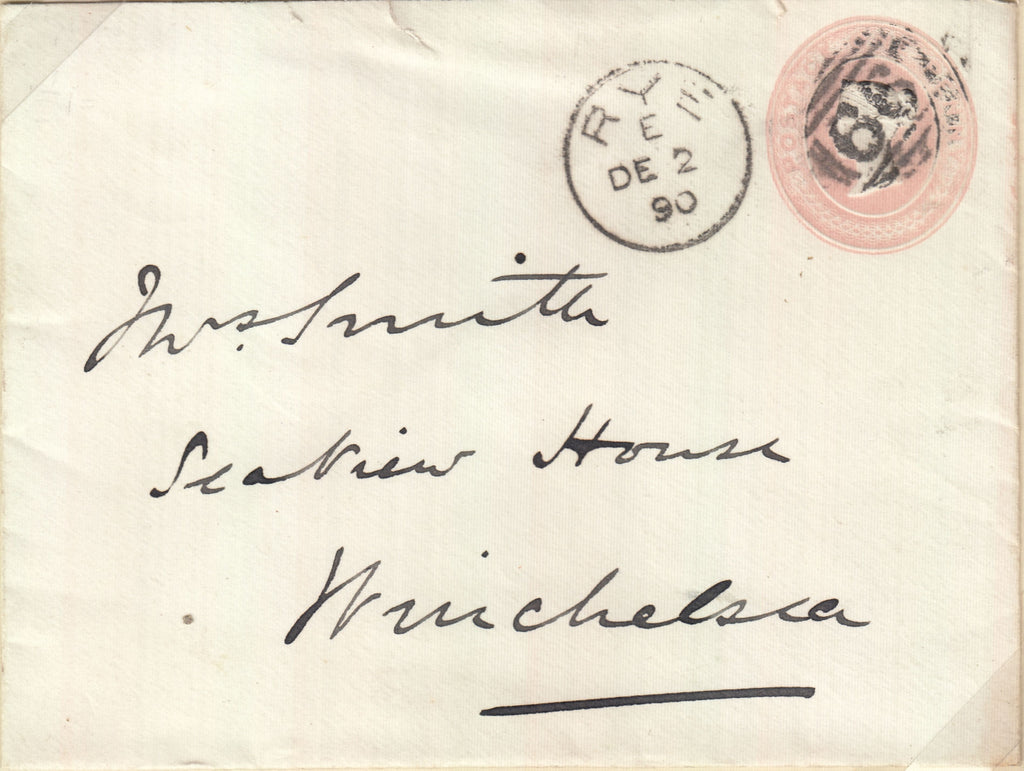 RYE
E
DE 2
90
POSTAGE
Mrs. Smith
Seaview House
Winchelsea